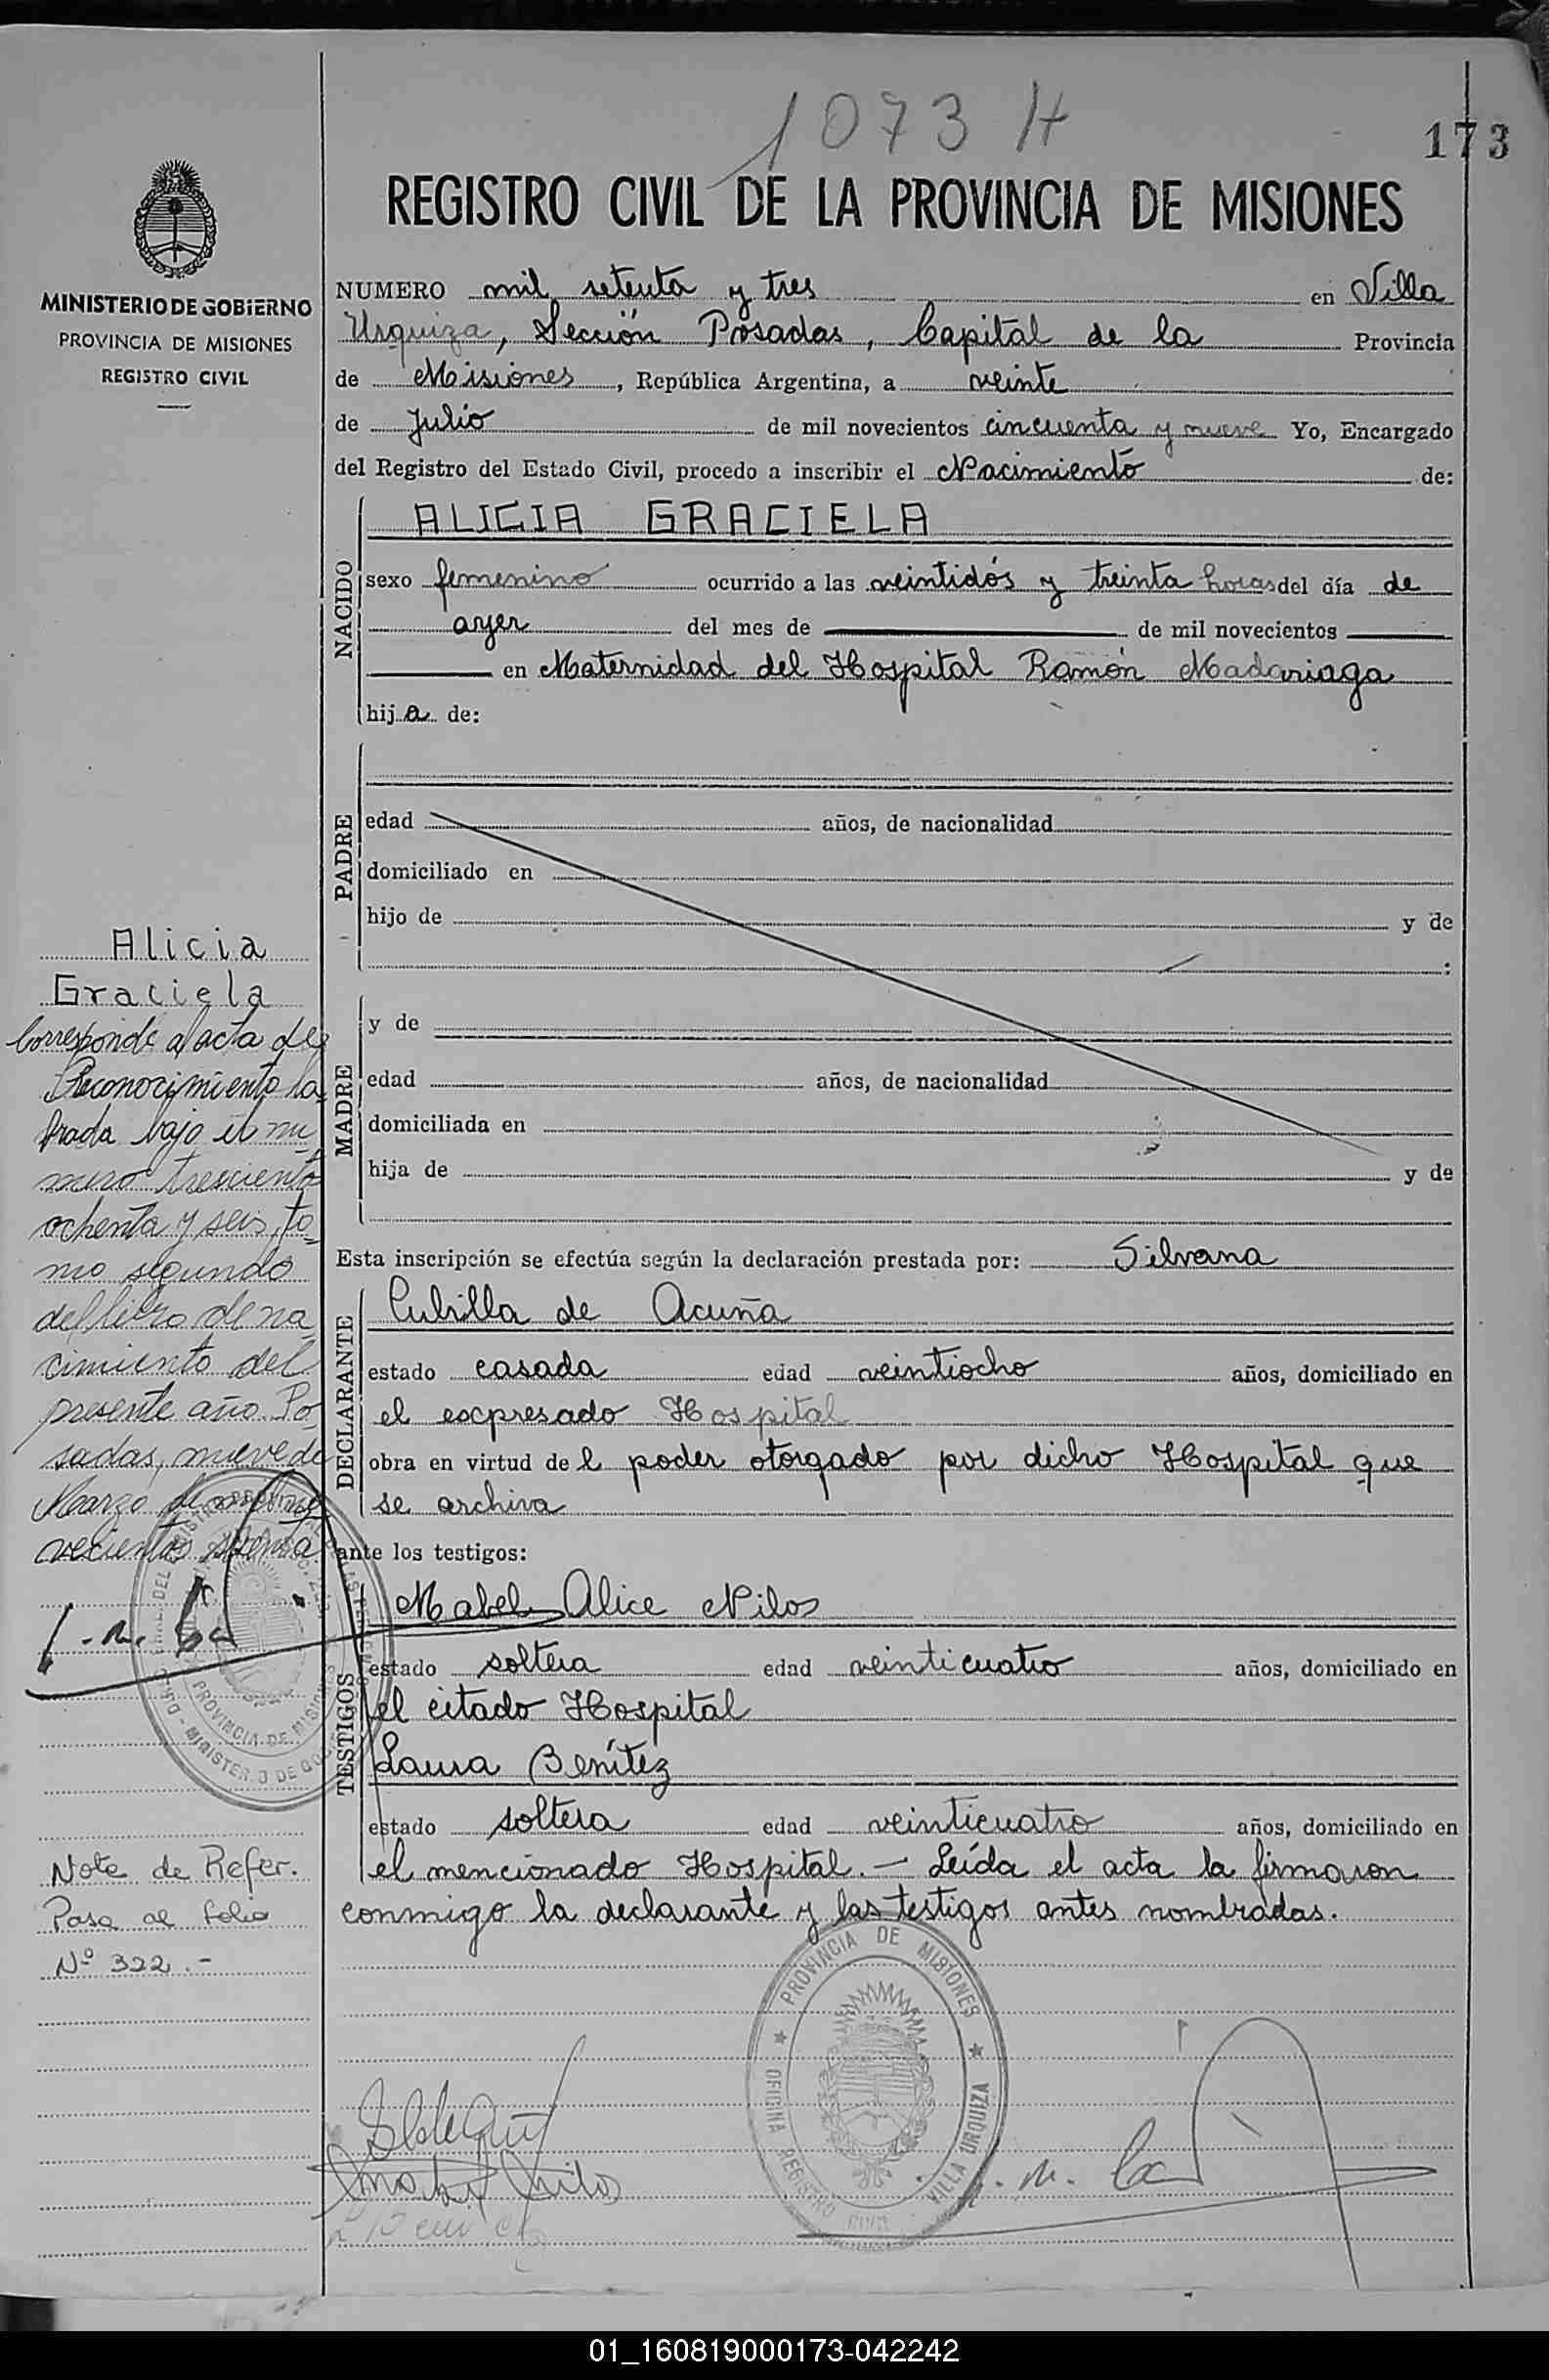 1073 H
173
REGISTRO CIVIL DE LA PROVINCIA DE MISIONES
MINISTERIO DE GOBIERNO
PROVINCIA DE MISIONES
REGISTRO CIVIL
NUMERO mil setenta y tres en Villa
Urquiza, Sección Posadas, Capital de la Provincia
de Misiones, República Argentina, a veinte
de Julio de mil novecientos cincuenta y nueve Yo, Encargado
del Registro del Estado Civil, procedo a inscribir el Nacimiento de:
NACIDO
ALICIA GRACIELA
sexo femenino ocurrido a las veintidós y treinta horas del día de
ayer del mes de de mil novecientos
en Maternidad del Hospital Ramón Madariaga
hija de:
PADRE
edad años, de nacionalidad
domiciliado en
hijo de y de
:
MADRE
y de
edad años, de nacionalidad
domiciliada en
hija de y de
Esta inscripción se efectúa según la declaración prestada por: Silvana
DECLARANTE
Cubilla de Acuña
estado casada edad veintiocho años, domiciliado en
el expresado Hospital
obra en virtud del poder otorgado por dicho Hospital que
se archiva
ante los testigos:
TESTIGOS
Mabel Alice Nilos
estado soltera edad veinticuatro años, domiciliado en
el citado Hospital
Laura Benítez
estado soltera edad veinticuatro años, domiciliado en
el mencionado Hospital.- Leída el acta la firmaron
conmigo la declarante y las testigos antes nombradas.
Alicia
Graciela
Corresponde al acta de
Reconocimiento la
brada bajo el nu
mero trescientos
ochenta y seis, to
mo segundo
del libro de na
cimiento del
presente año. Po
sadas, nueve de
Marzo de mil no
vecientos sesenta
Nota de Refer.
Pasa al folio
Nº 322.-
PROVINCIA DE MISIONES
OFICINA REGISTRO CIVIL
VILLA URQUIZA
PROVINCIA DE MISIONES
MINISTERIO DE GOB
01_160819000173-042242